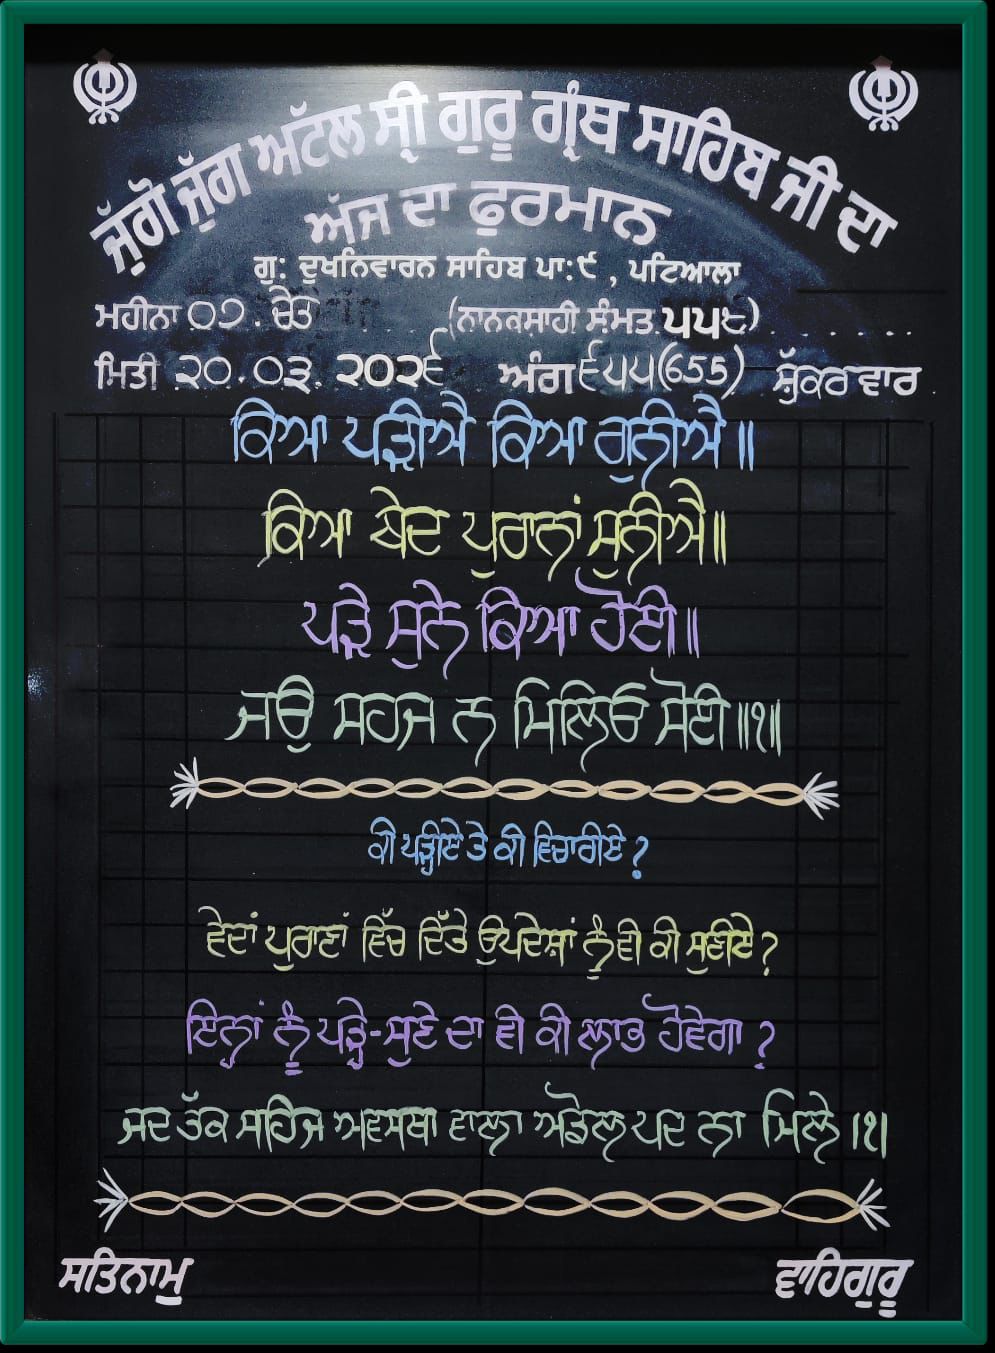 ਜੁੱਗੋ ਜੁੱਗ ਅੱਟਲ ਸ੍ਰੀ ਗੁਰੂ ਗ੍ਰੰਥ ਸਾਹਿਬ ਜੀ ਦਾ
ਅੱਜ ਦਾ ਫੁਰਮਾਨ
ਗੁ: ਦੁਖਨਿਵਾਰਨ ਸਾਹਿਬ ਪਾ:੯ , ਪਟਿਆਲਾ
ਮਹੀਨਾ ੦੭. ਚੇਤ (ਨਾਨਕਸਾਹੀ ਸੰਮਤ ੫੫੮)
ਮਿਤੀ ੨੦.੦੩.੨੦੨੬ ਅੰਗ ੬੫੫(655) ਸ਼ੁੱਕਰਵਾਰ
ਕਿਆ ਪੜੀਐ ਕਿਆ ਗੁਨੀਐ॥
ਕਿਆ ਬੇਦ ਪੁਰਾਨਾਂ ਸੁਨੀਐ॥
ਪੜੇ ਸੁਨੇ ਕਿਆ ਹੋਈ॥
ਜਉ ਸਹਜ ਨ ਮਿਲਿਓ ਸੋਈ॥੧॥
ਕੀ ਪੜ੍ਹੀਏ ਤੇ ਕੀ ਵਿਚਾਰੀਏ ?
ਵੇਦਾਂ ਪੁਰਾਣਾਂ ਵਿੱਚ ਦਿੱਤੇ ਉਪਦੇਸ਼ਾਂ ਨੂੰ ਵੀ ਕੀ ਸੁਣੀਏ ?
ਇਨ੍ਹਾਂ ਨੂੰ ਪੜ੍ਹੇ-ਸੁਣੇ ਦਾ ਵੀ ਕੀ ਲਾਭ ਹੋਵੇਗਾ ?
ਜਦ ਤੱਕ ਸਹਿਜ ਅਵਸਥਾ ਵਾਲਾ ਅਡੋਲ ਪਦ ਨਾ ਮਿਲੇ।੧।
ਸਤਿਨਾਮੁ ਵਾਹਿਗੁਰੂ